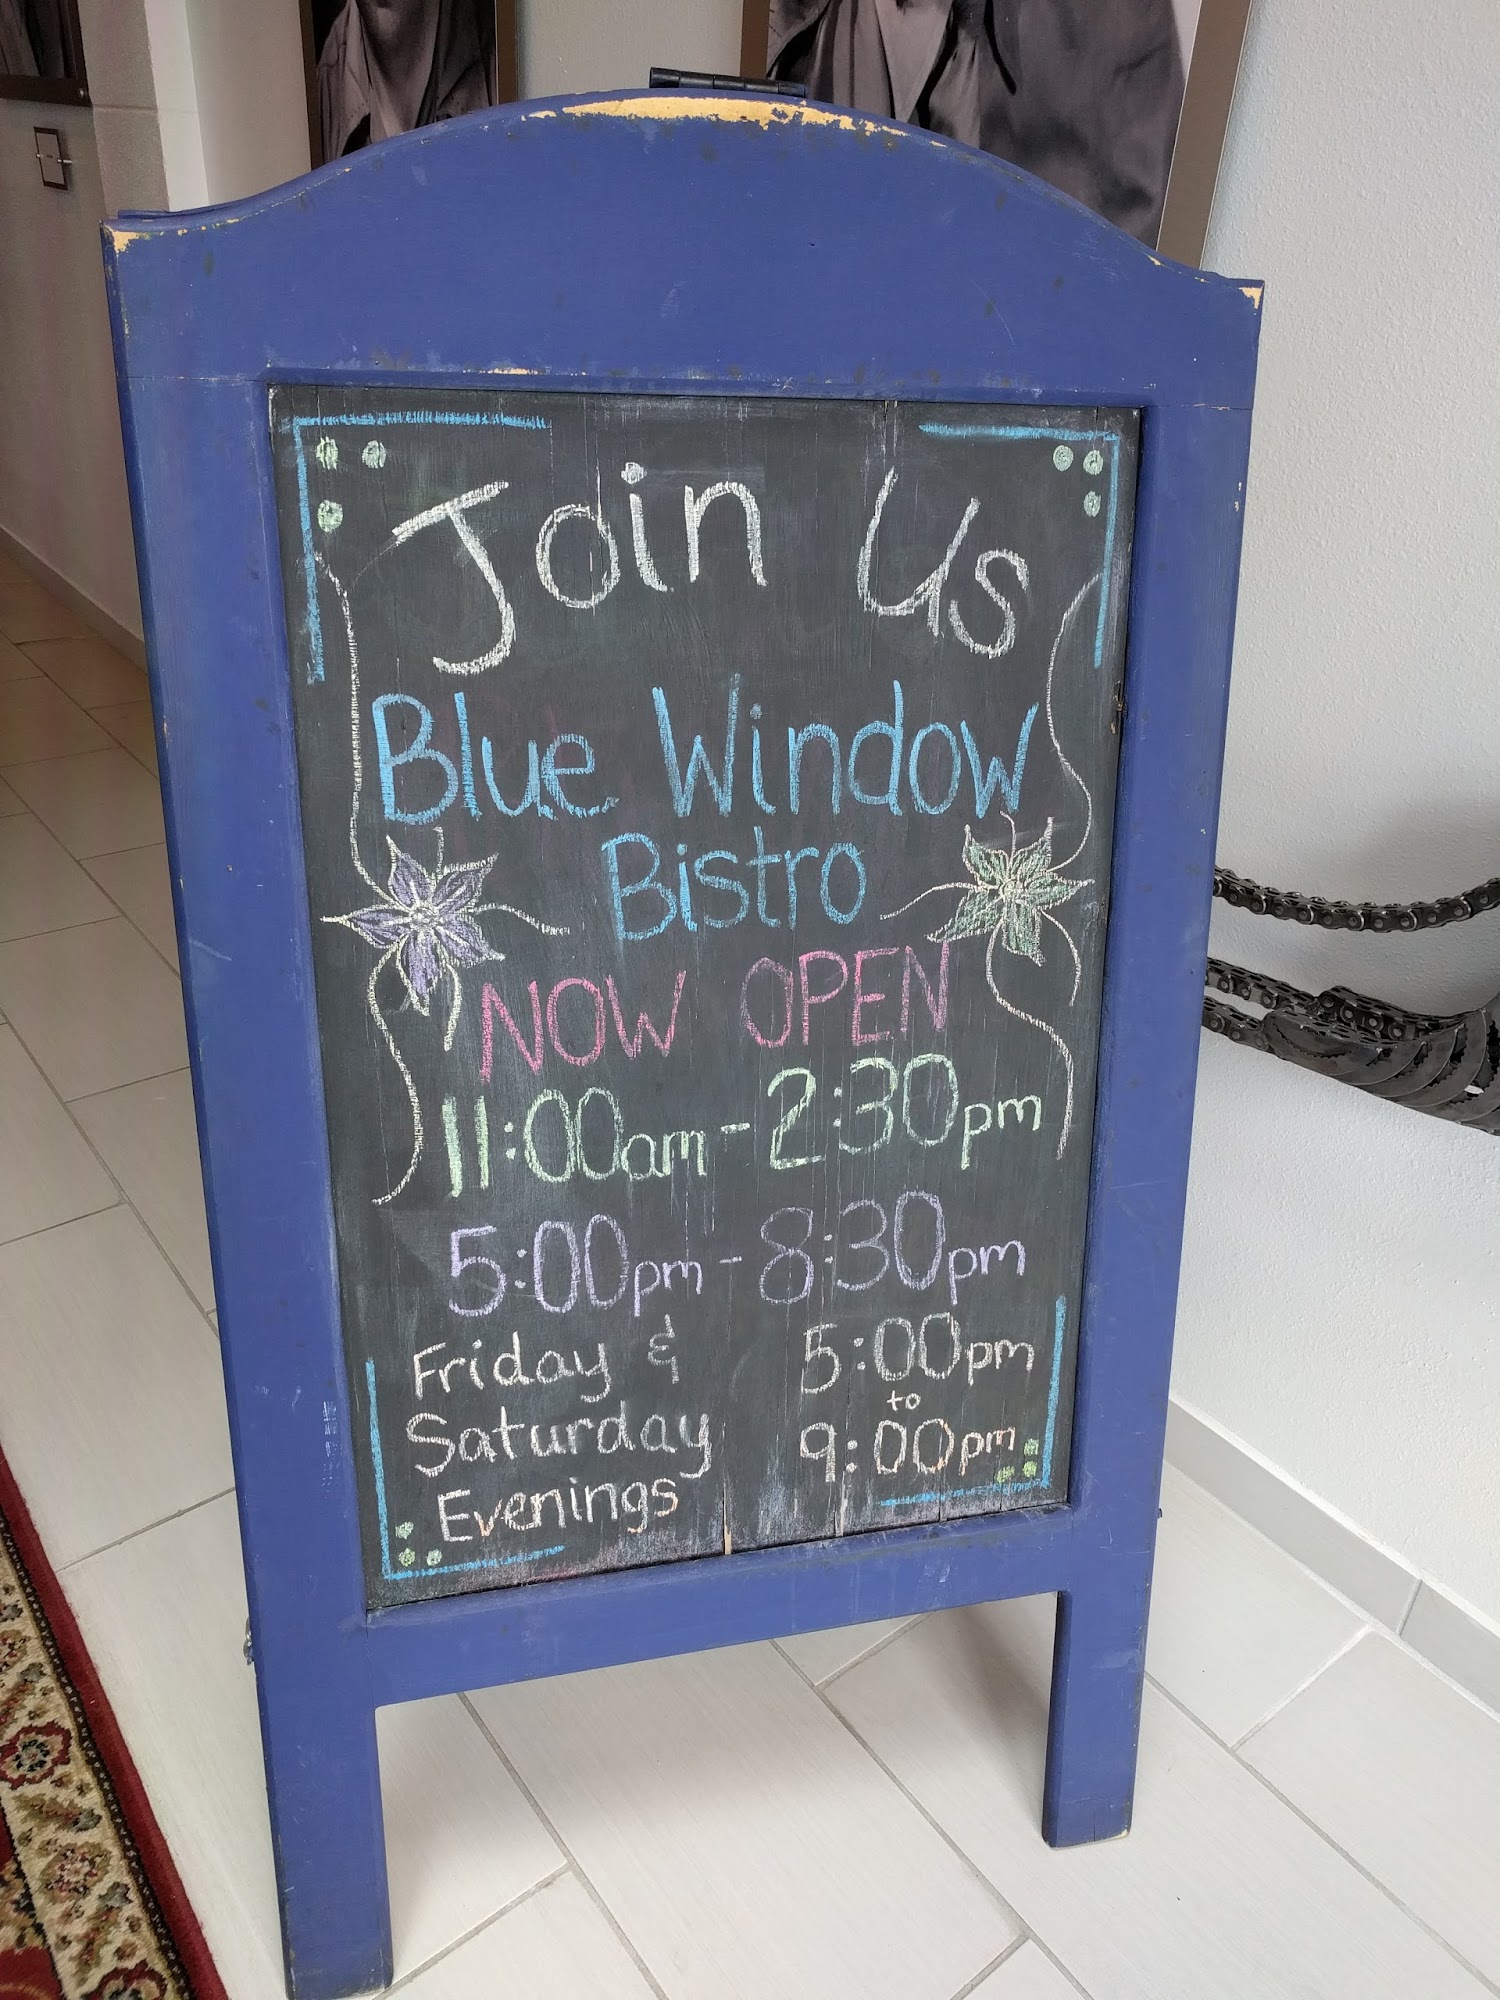 Join Us
Blue Window
Bistro
NOW OPEN
11:00am - 2:30pm
5:00pm - 8:30pm
Friday & 5:00pm
to
Saturday 9:00pm
Evenings